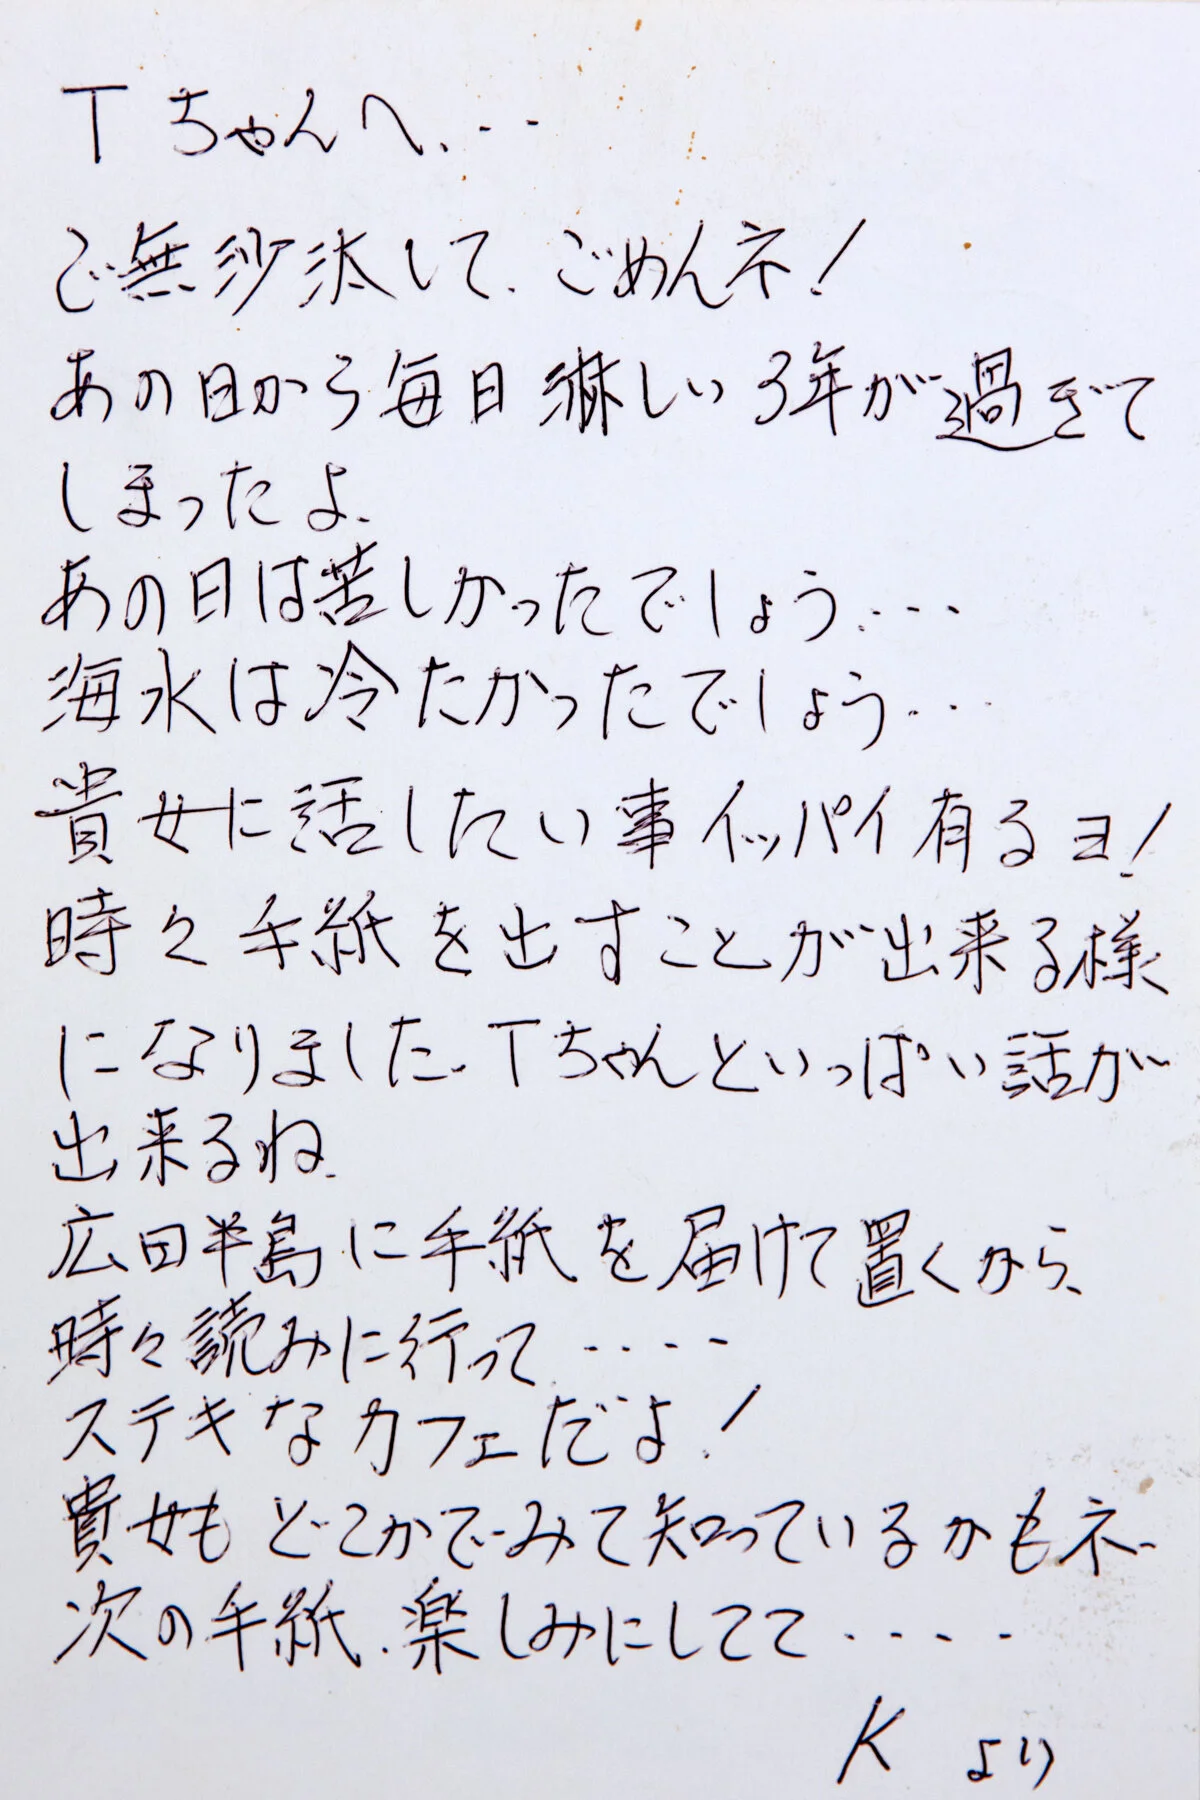 Tちゃんへ、‥
ご無沙汰して、ごめんネ!
あの日から毎日淋しい3年が過ぎて
しまったよ、
あの日は苦しかったでしょう・・・・
海水は冷たかったでしょう・・・
貴女に話したい事イッパイ有るヨ!
時々手紙を出すことが出来る様
になりました、Tちゃんといっぱい話が
出来るね、
広田半島に手紙を届けて置くから、
時々読みに行って・・・・
ステキなカフェだよ!
貴女もどこかでみて知っているかもネ、
次の手紙、楽しみにしてて・・・・
Kより